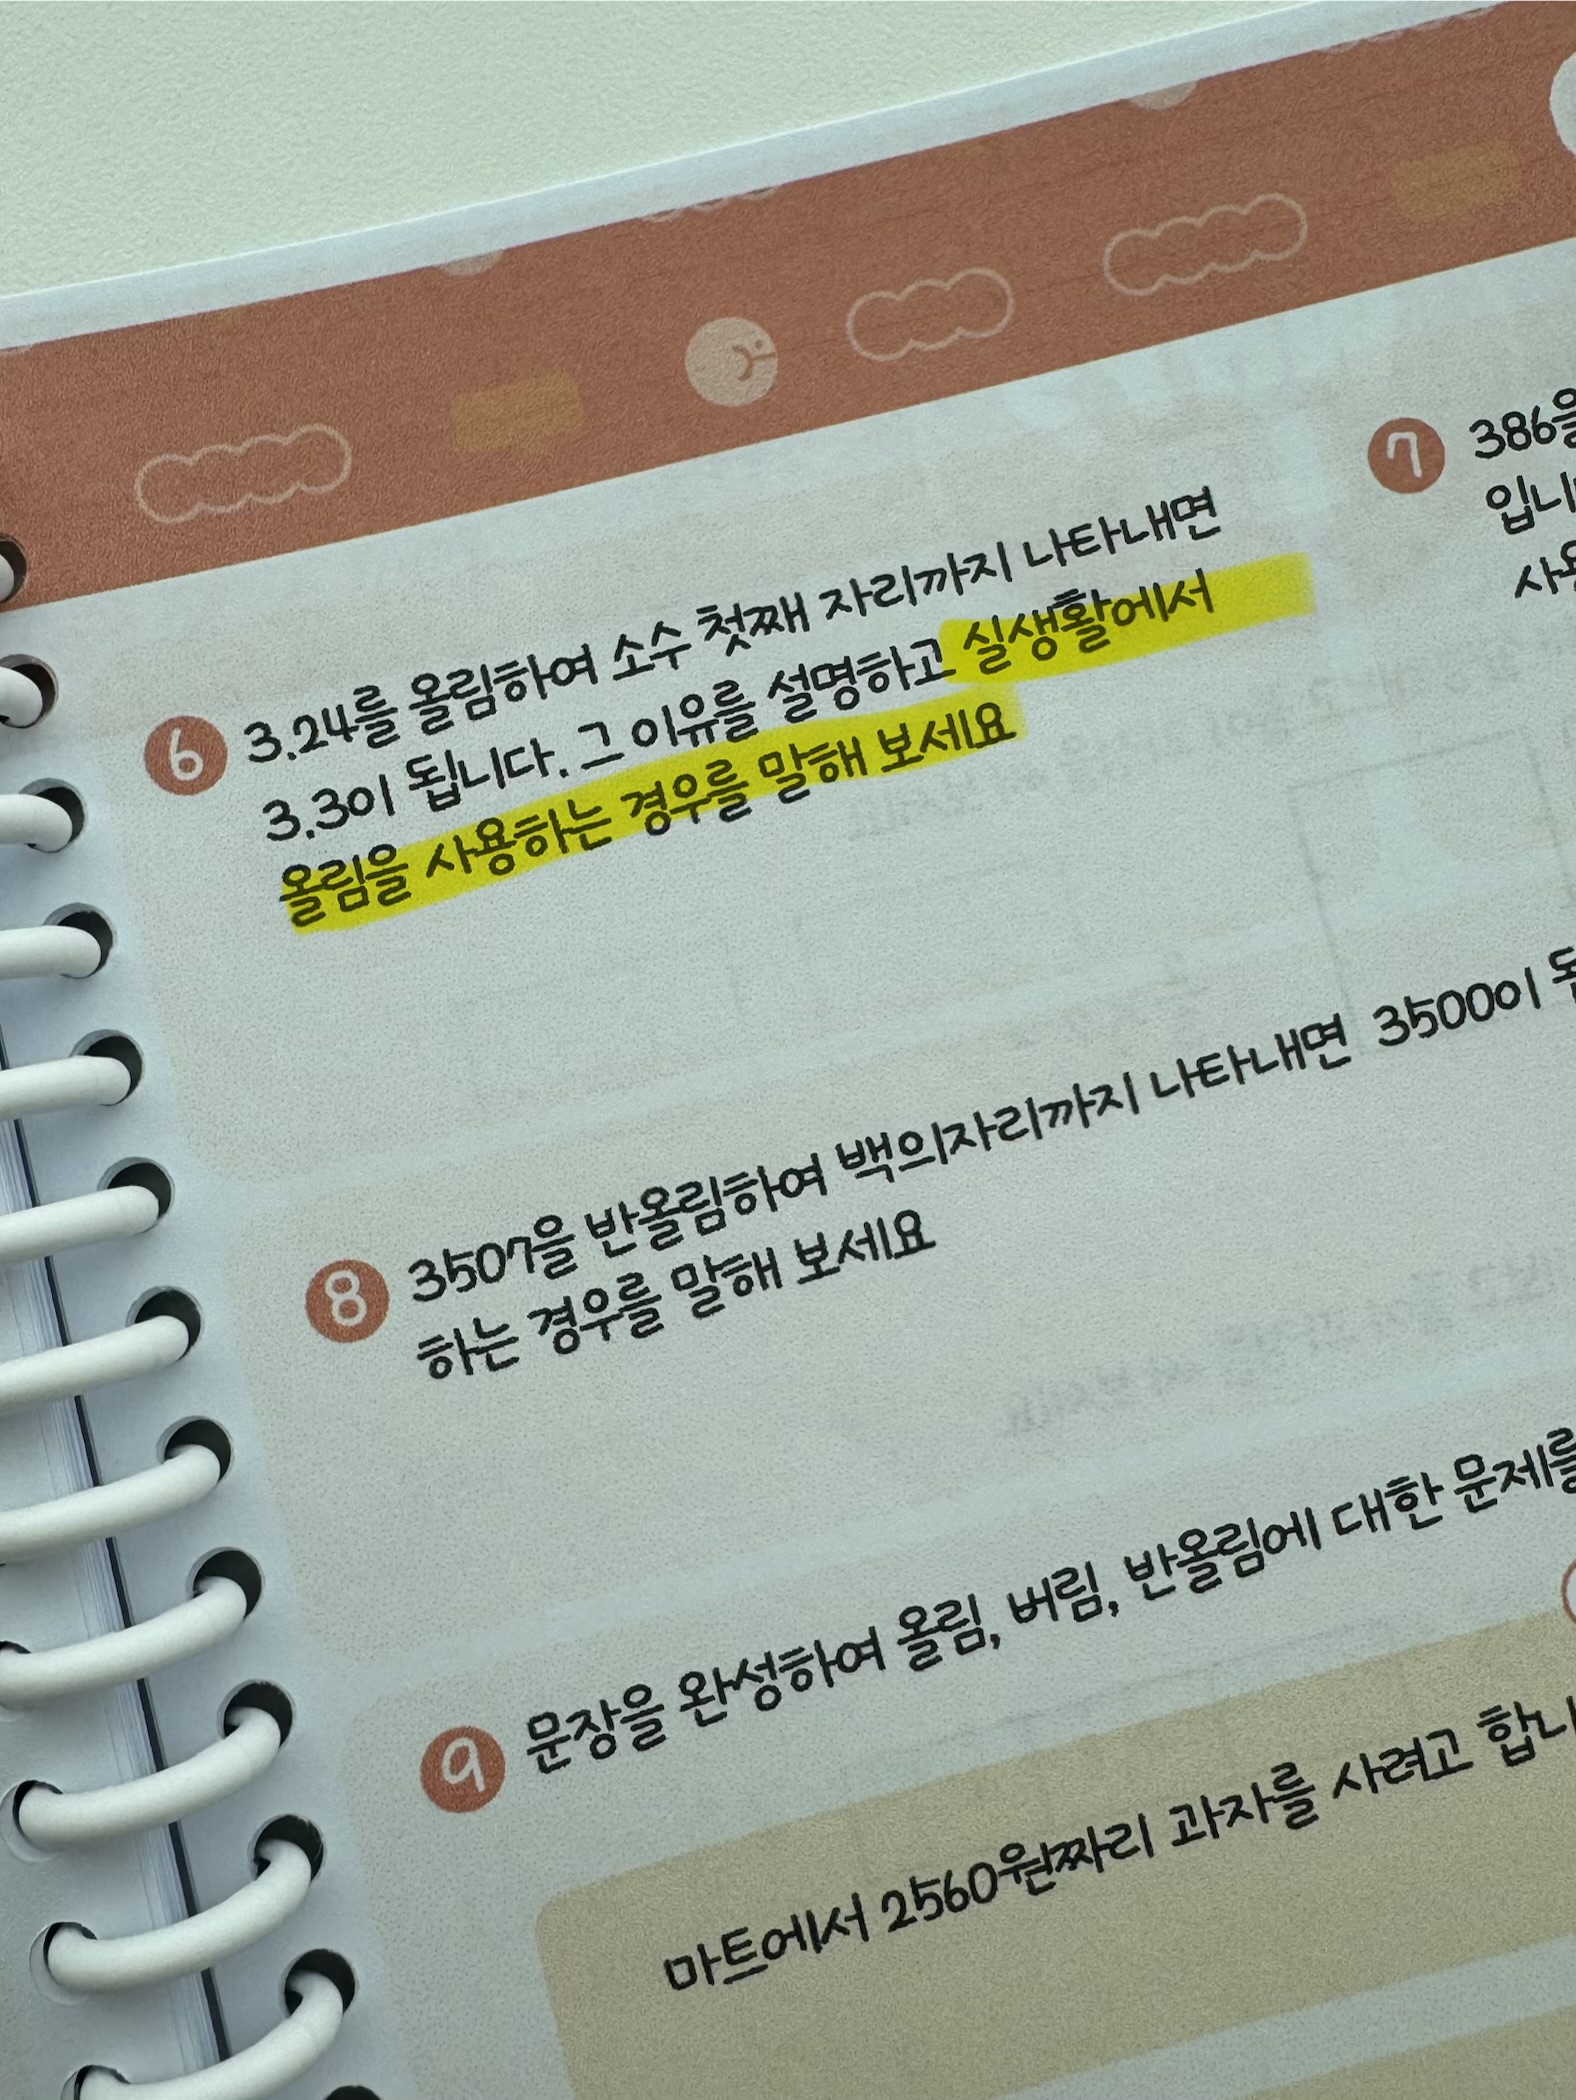 6 3.24를 올림하여 소수 첫째 자리까지 나타내면
3.3이 됩니다. 그 이유를 설명하고 실생활에서
올림을 사용하는 경우를 말해 보세요
7 386을
8 3507을 반올림하여 백의자리까지 나타내면 3500이
하는 경우를 말해 보세요
9 문장을 완성하여 올림, 버림, 반올림에 대한 문제를
마트에서 2560원짜리 과자를 사려고